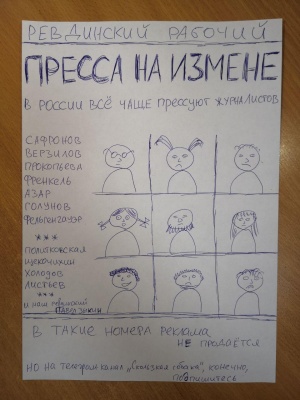 РЕВДИНСКИЙ РАБОЧИЙ
ПРЕССА НА ИЗМЕНЕ
В РОССИИ ВСЁ ЧАЩЕ ПРЕССУЮТ ЖУРНАЛИСТОВ
САФРОНОВ
ВЕРЗИЛОВ
ПРОКОПЬЕВА
ФРЕНКЕЛЬ
АЗАР
ГОЛУНОВ
ФЕЛЬГЕНГАУЭР
***
ПОЛИТКОВСКАЯ
ЩЕКОЧИХИН
ХОЛОДОВ
ЛИСТЬЕВ
***
и наш ревдинский
В ТАКИЕ НОМЕРА РЕКЛАМА
НЕ ПРОДАЁТСЯ
НО НА ТЕЛЕГРАМ КАНАЛ „ собака", КОНЕЧНО,
ПОДПИШИТЕСЬ